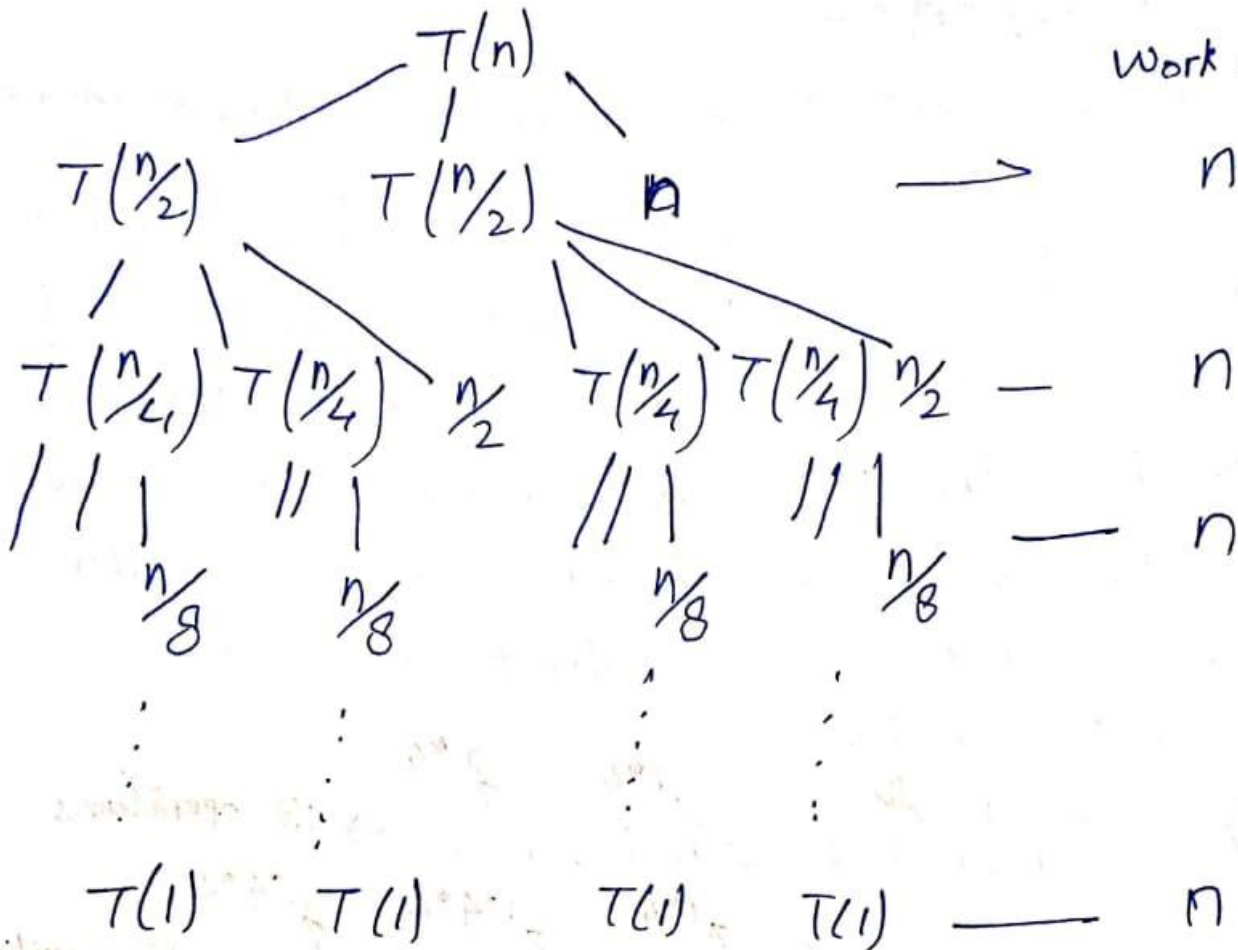 T(n) Work
T(n/2) T(n/2) n → n
T(n/4) T(n/4) n/2 T(n/4) T(n/4) n/2 — n
— n
n/8 n/8 n/8 n/8
T(1) T(1) T(1) T(1) — n